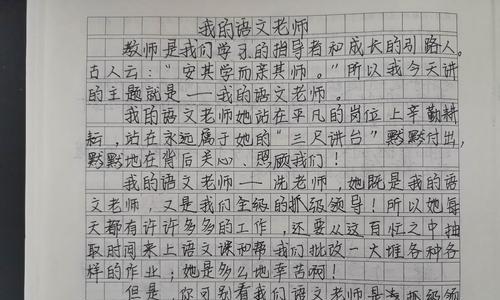 我的语文老师
教师是我们学习的指导者和成长的引路人。
古人云：“安其学而亲其师。”所以我今天讲
的主题就是——我的语文老师。
我的语文老师她站在平凡的岗位上辛勤耕
耘，站在永远属于她的“三尺讲台”默默付出，
默默地在背后关心、照顾我们！
我的语文老师——冼老师，她既是我的语
文老师，又是我们全级的抓级领导！所以她每
天都有许许多多的工作，还要从这百忙之中抽
取时间来上语文课和帮我们批改一大堆各种各
样的作业；她是多么地辛苦啊！
但是，你可别看我们语文老师是
抓级领